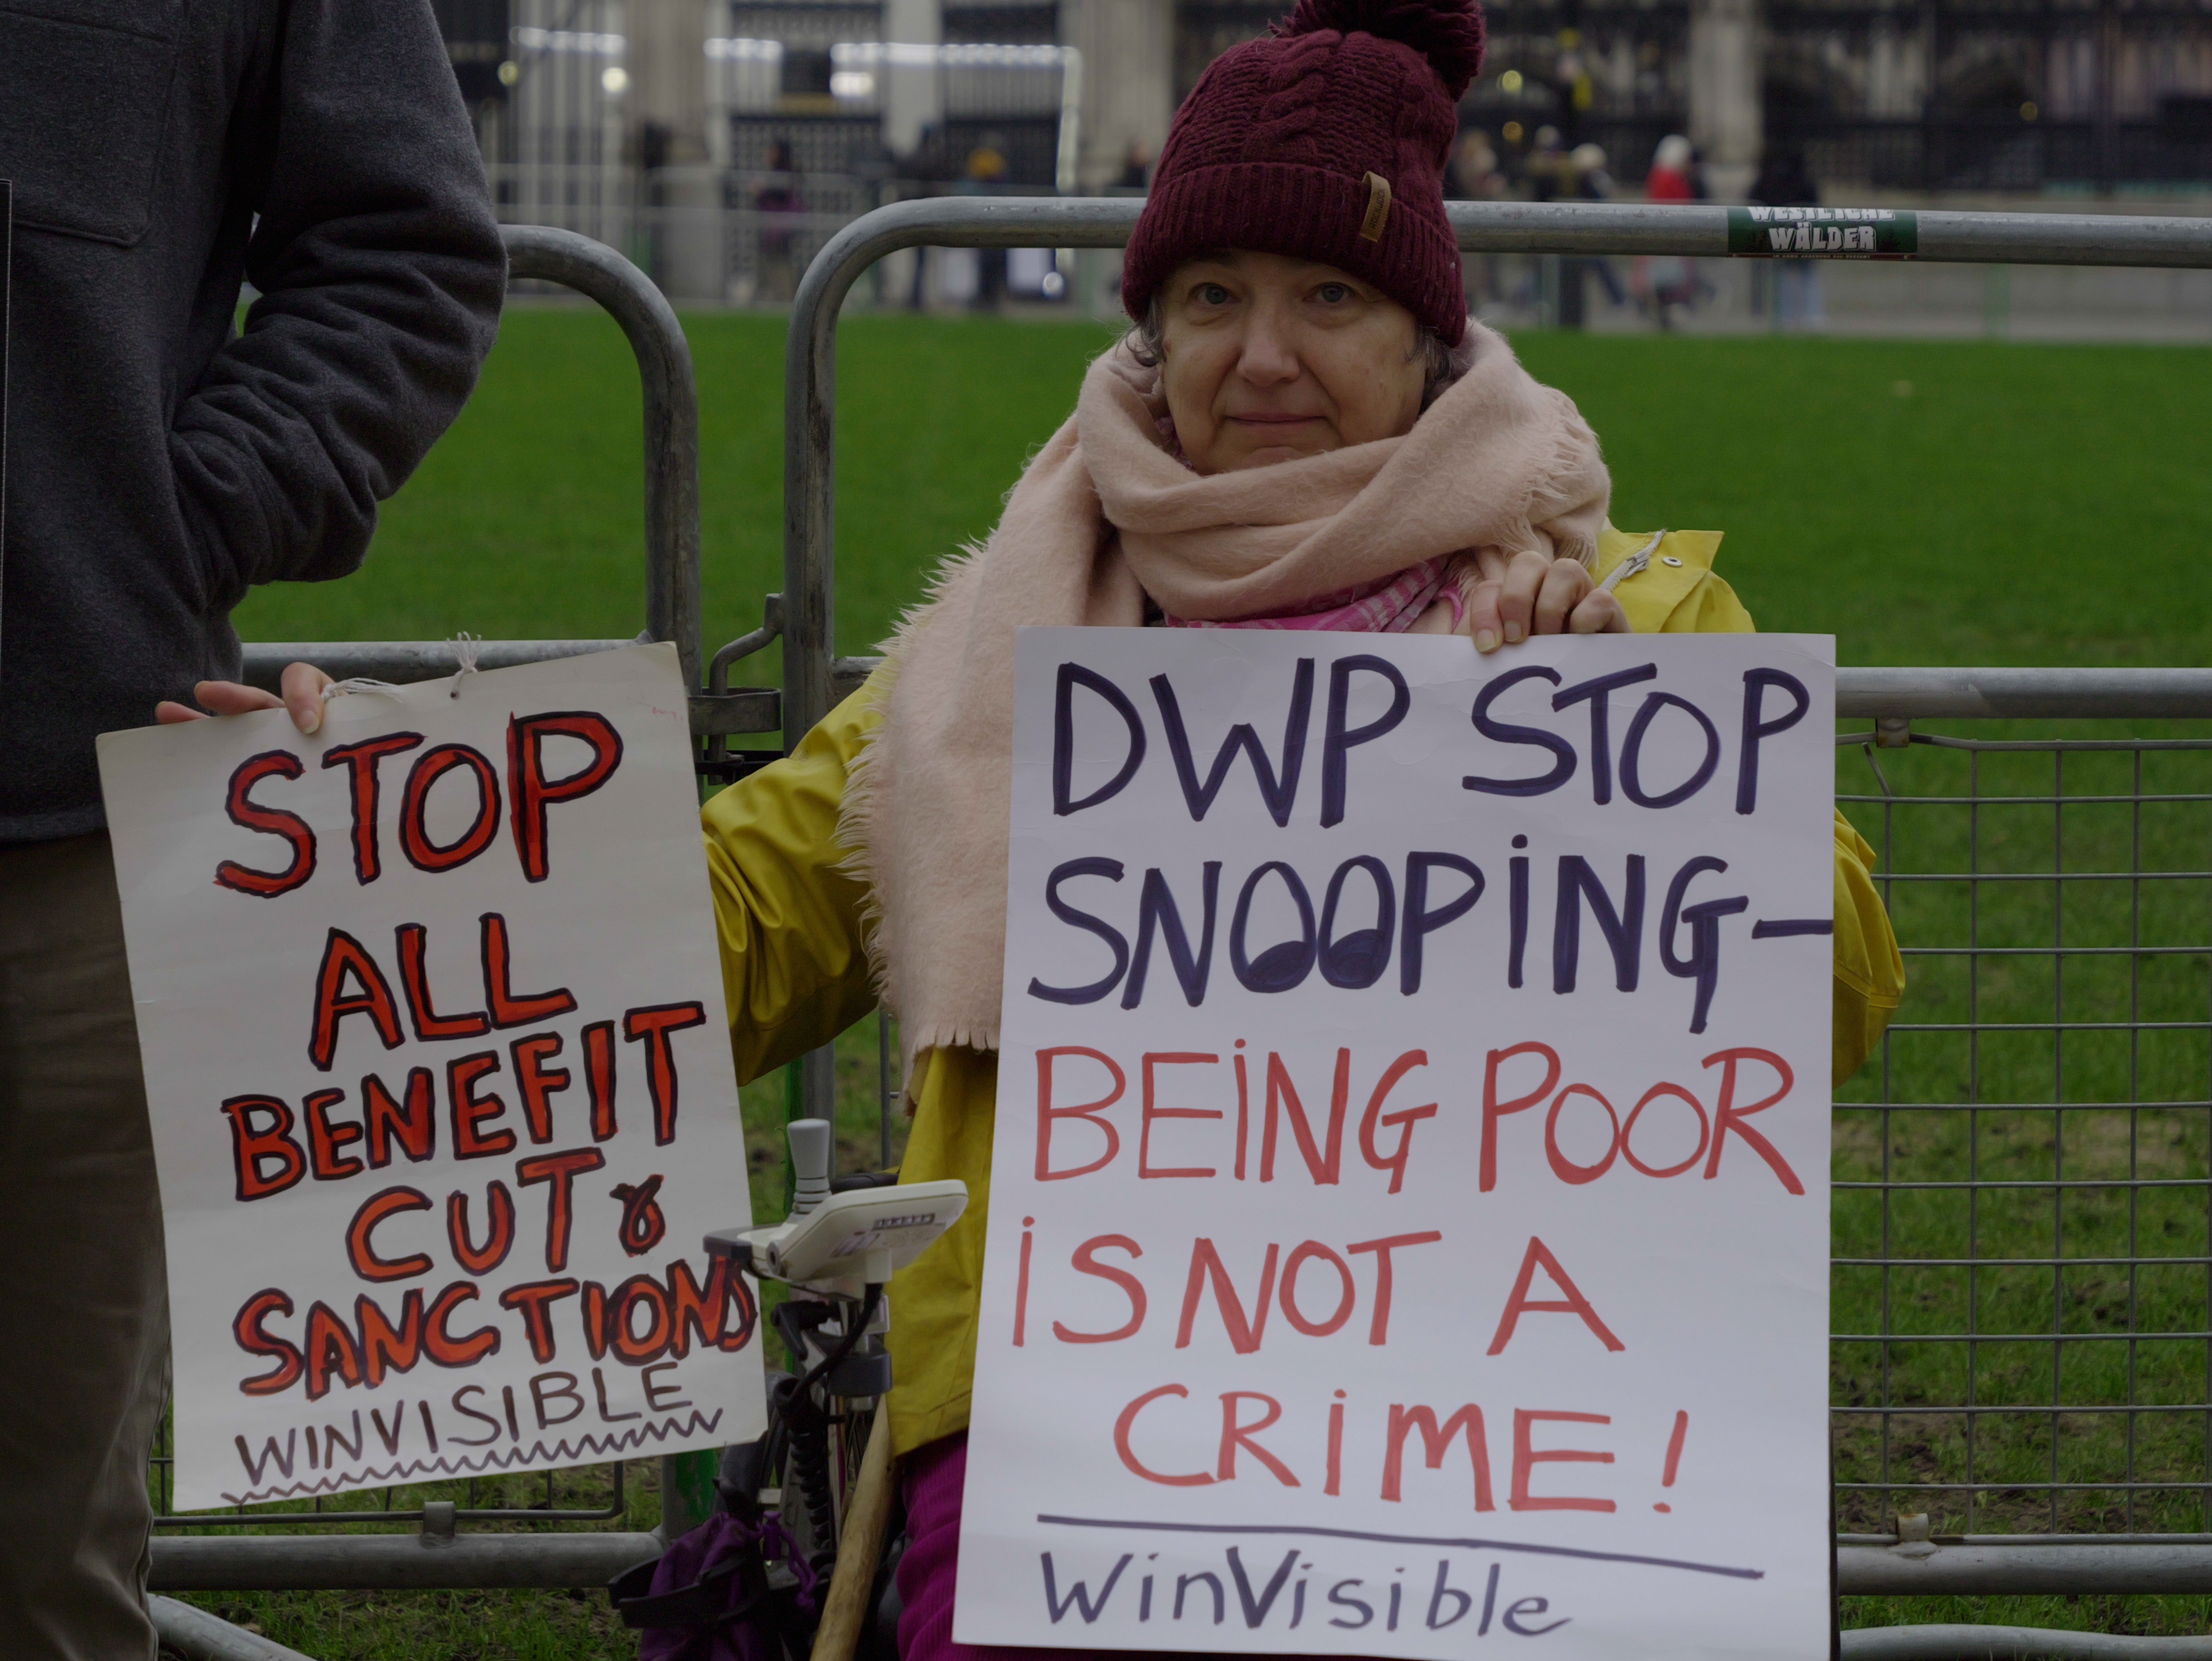 WESTLICHE
WÄLDER
STOP
ALL
BENEFIT
CUT &
SANCTIONS
WINVISIBLE
DWP STOP
SNOOPING-
BEING POOR
IS NOT A
CRIME!
WinVisible